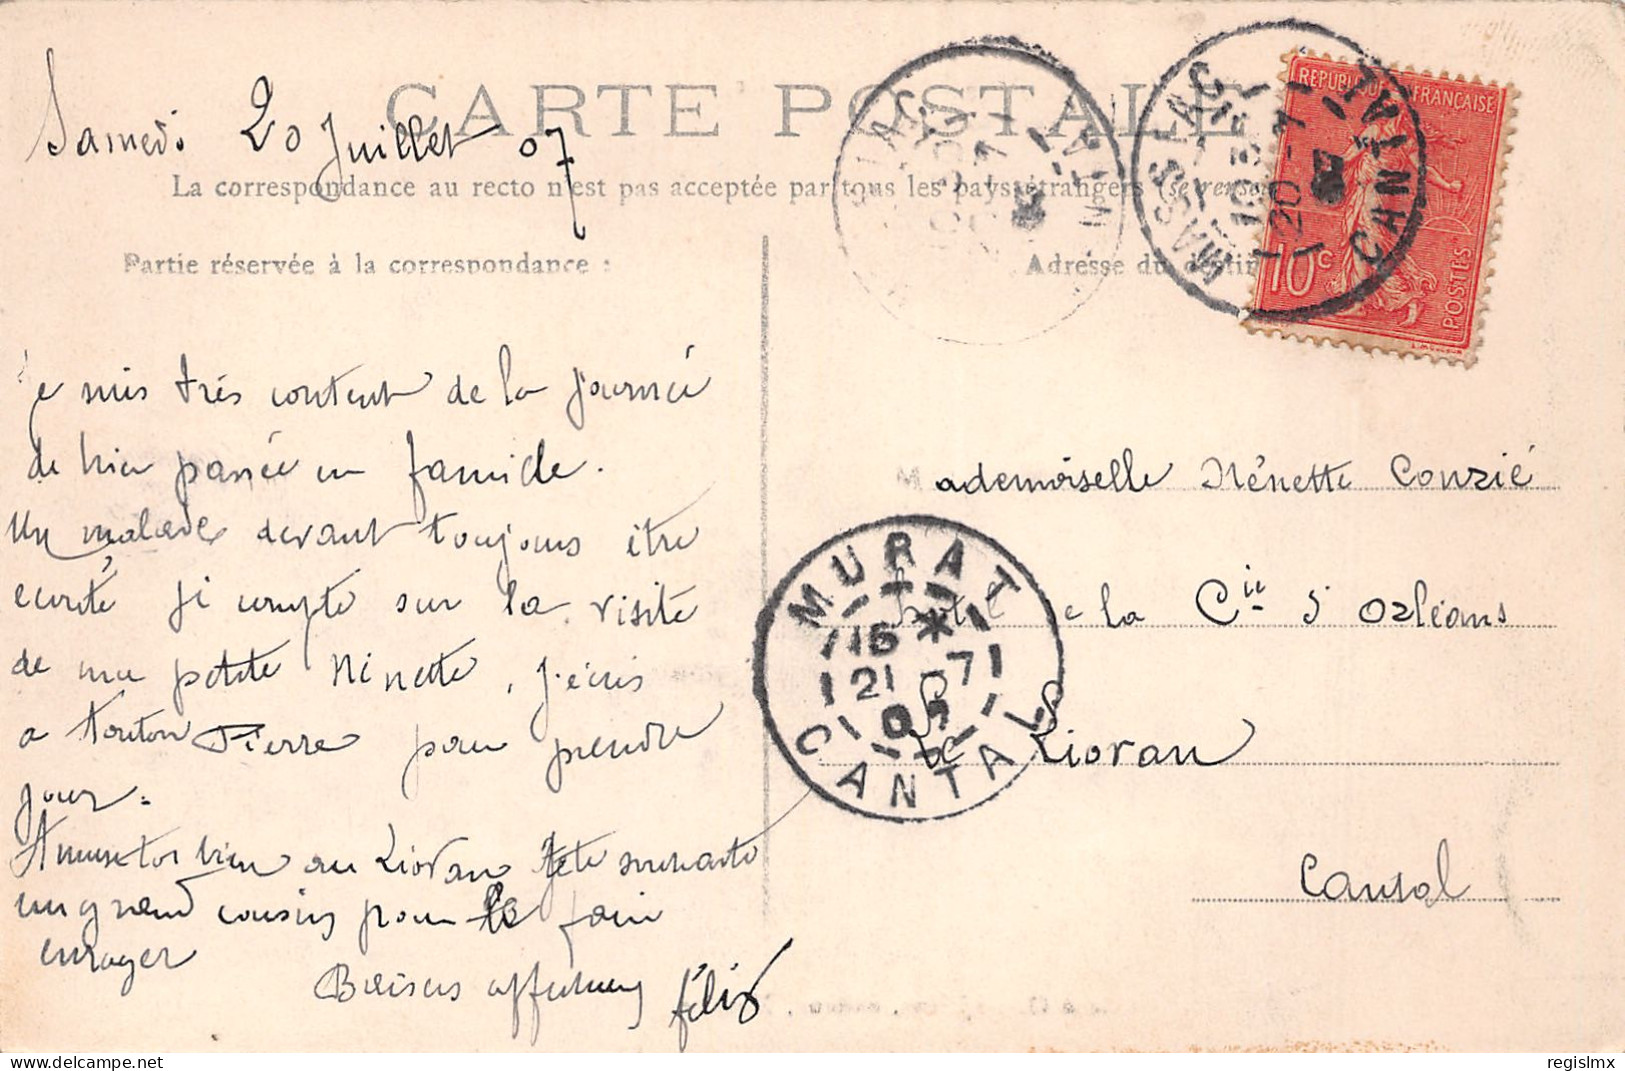 Samedi 20 Juillet 07
CARTE POSTALE
La correspondance au recto n'est pas acceptée par tous les pays étrangers (se renseigner
Partie réservée à la correspondance :
Adresse du destin
REPUBLIQUE FRANÇAISE
10c
POSTES
MASSIAC
CANTAL
20 -7
Je suis très content de la journée
de hier passée en famille.
Un malade devant toujours être
ecouté je compte sur la visite
de ma petite Ninette, j'écris
a tonton Pierre pour prendre
jour.
Amuse toi bien au Lioran
un grand cousins pour le fair
enrager
Baisers affectueux félix
Mademoiselle Nénette Conzié
hotel de la Cie d'Orléans
Le Lioran
Cantal
MURAT
15 *
21 -7
07
CANTAL
delcampe.net
regislmx